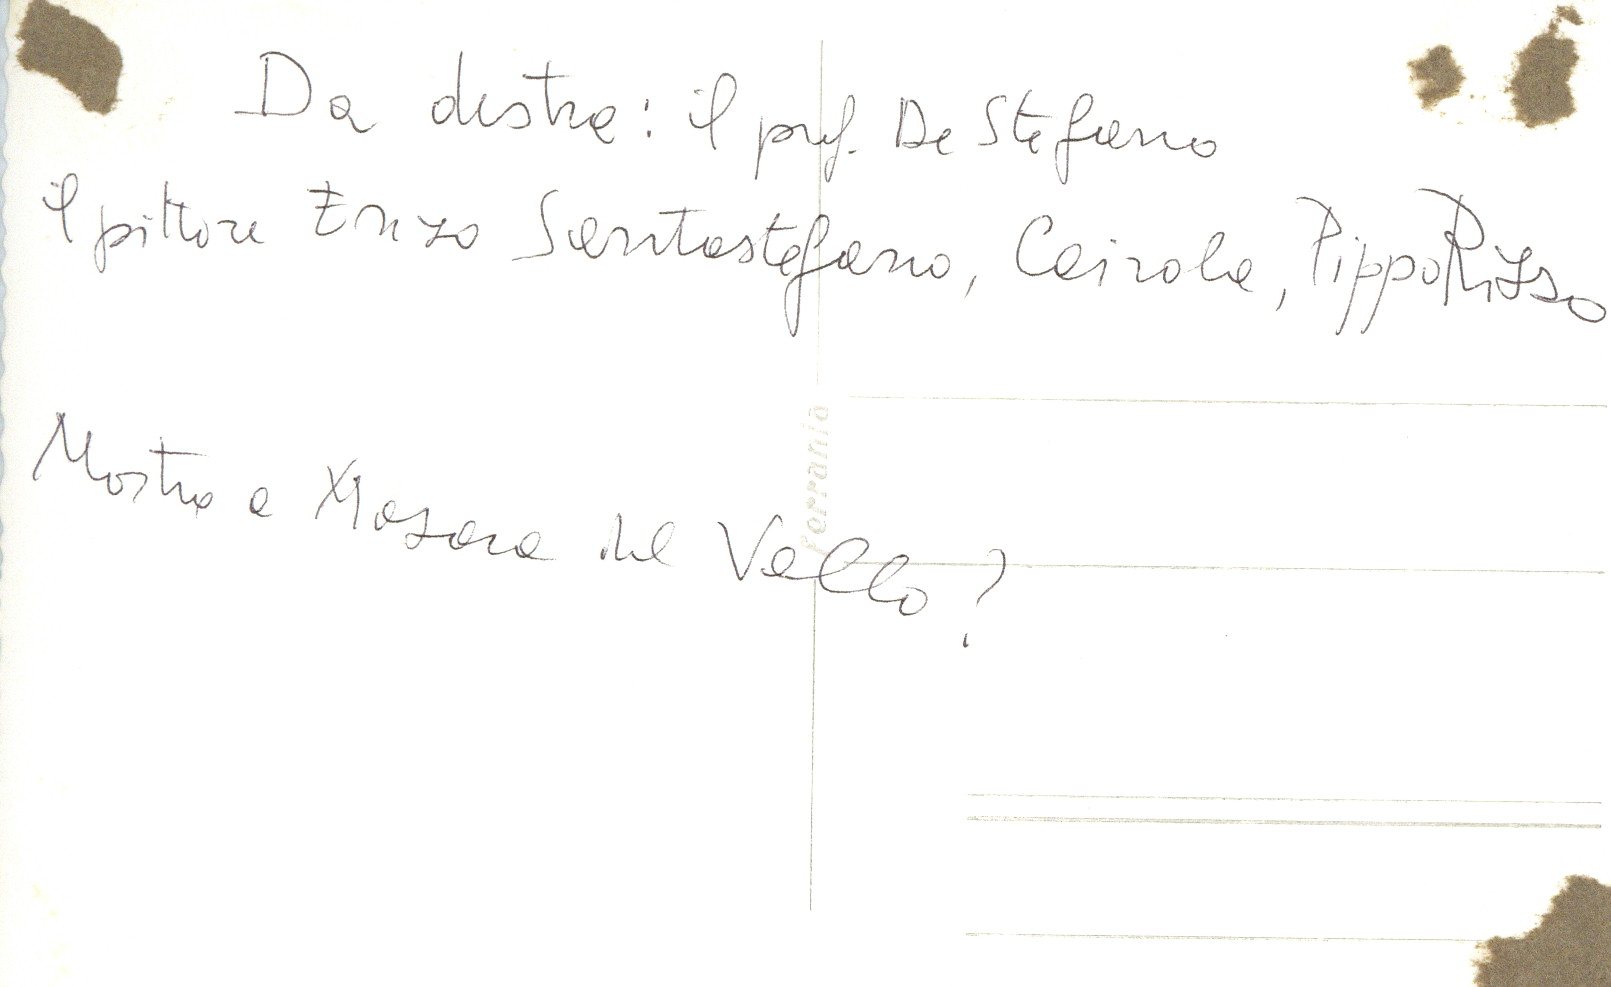 Da destra: il prof. De Stefano
il pittore Enzo Santostefano, Cairola, Pippo Rizzo
Mostra a Mazara del Vallo?
ferrania